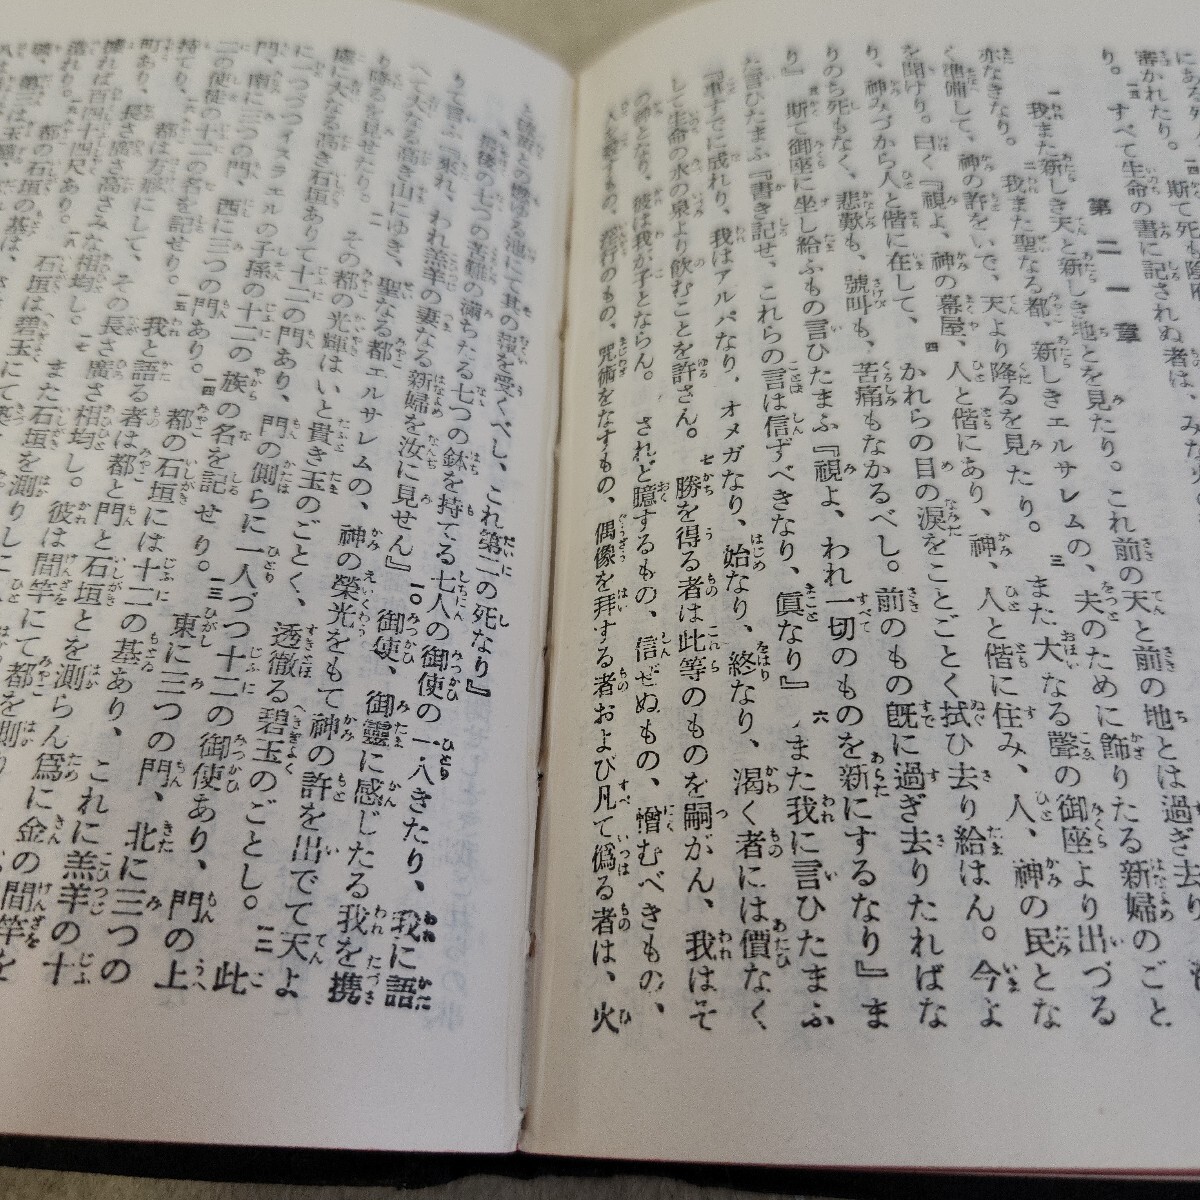 にある
書かれたり。一四 斯て死も陰府
り。一五 すべて生命の書に記されぬ者は、みな
第二一章
一 我また新しき天と新しき地とを見たり。これ前の天と前の地とは過ぎ去
亦なきなり。二 我また聖なる都、新しきエルサレムの、夫のために飾りたる新婦のごと
く準備して、神の許をいで、天より降るを見たり。三 また大なる聲の御座より出づる
を聞けり。曰く『視よ、神の幕屋、人と偕にあり、神、人と偕に住み、人、神の民とな
り、神みづから人と偕に在して、四 かれらの目の涙をことごとく拭ひ去り給はん。今よ
りのち死もなく、悲歎も、號叫も、苦痛もなかるべし。前のもの既に過ぎ去りたればな
り』 斯て御座に坐し給ふもの言ひたまふ『視よ、われ一切のものを新にするなり』ま
た言ひたまふ『書き記せ、これらの言は信ずべきなり、眞なり』六 また我に言ひたまふ
『事すでに成れり、我はアルパなり、オメガなり、始なり、終なり、渇く者には價なく
して生命の水の泉より飮むことを許さん。七 勝を得る者は此等のものを嗣がん、我はそ
の神となり、彼は我が子とならん。 されど臆するもの、信ぜぬもの、憎むべきもの、
人を殺すもの、淫行のもの、咒術をなすもの、偶像を拜する者および凡て僞る者は、火
と硫黄との燃ゆる池にて其の報を受くべし、これ第二の死なり』
最後の七つの苦難の滿ちたる七つの鉢を持てる七人の御使の一人きたり、我に語
りて言ふ『來れ、われ羔羊の妻なる新婦を汝に見せん』一〇 御使、御靈に感じたる我を携
へて大なる高き山にゆき、聖なる都エルサレムの、神の榮光をもて神の許を出でて天よ
り降るを見せたり。一一 その都の光輝はいと貴き玉のごとく、透徹る碧玉のごとし。一二 此
處に大なる高き石垣ありて十二の門あり、門の側らに一人づつ十二の御使あり、門の上
に一つづつイスラエルの子孫の十二の族の名を記せり。一三 東に三つの門、北に三つの
門、南に三つの門、西に三つの門あり。一四 都の石垣には十二の基あり、これに羔羊の十
二の使徒の十二の名を記せり。一五 我と語る者は都と門と石垣とを測らん爲に金の間竿を
持てり。 都は方形にして、その長さ廣さ相均し。彼は間竿にて都を測り
町あり、長さ廣さ高さみな相均し。一七 また石垣を測りしに
據れば百四十四尺あり。一八 石垣は碧玉にて築
造れり。一九 都の石垣の基は